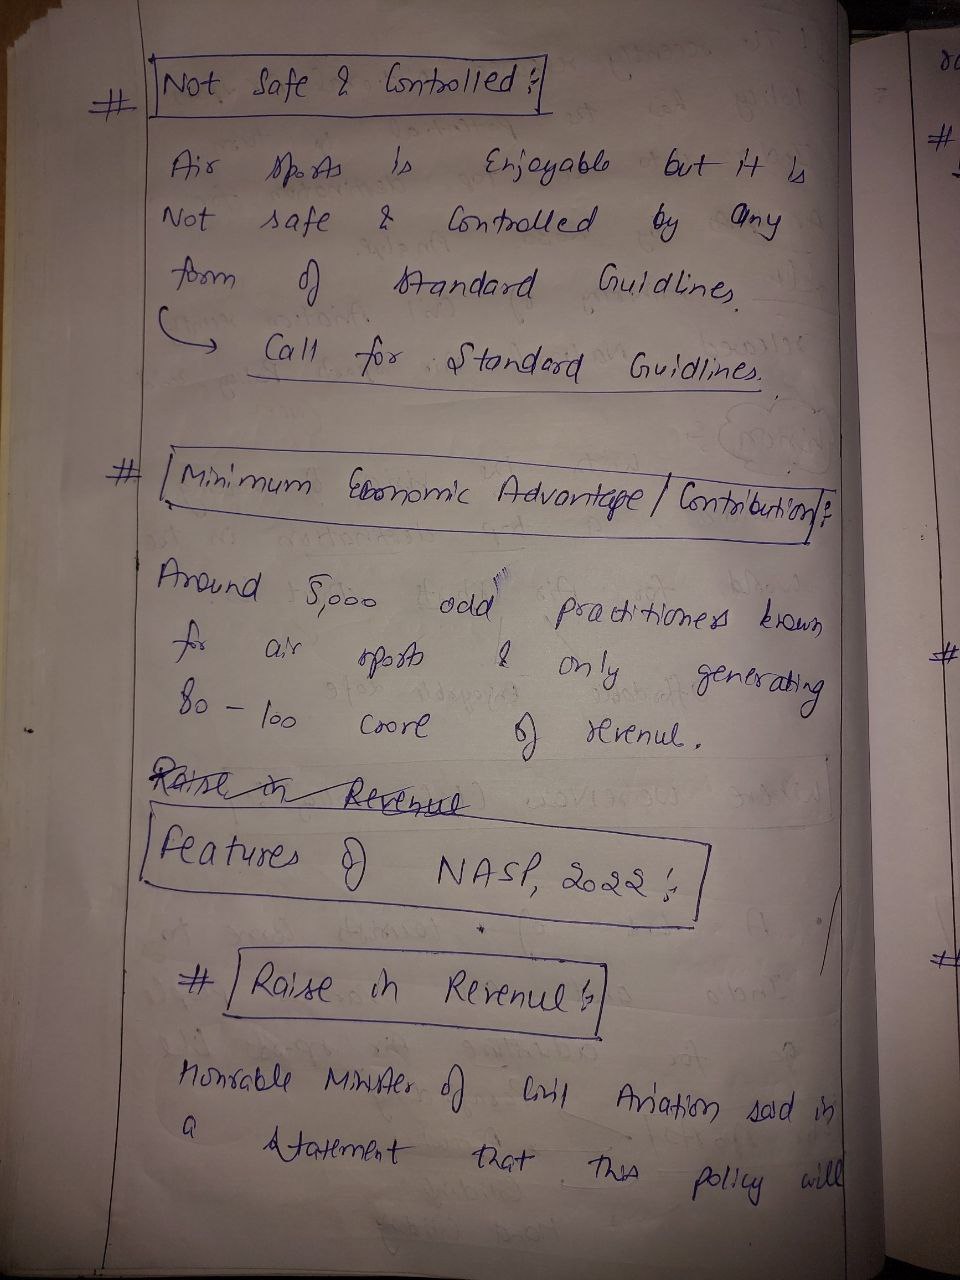 # Not Safe & Controlled :-
Air sports is Enjoyable but it is
Not safe & Controlled by any
form of standard Guidlines.
↳ Call for Standard Guidlines.
# Minimum Economic Advantage / Contribution :-
Around 5,000 odd practitioners known
for air sports & only generating
80 - 100 crore of revenue.
Raise in Revenue
Features of NASP, 2022 :-
# Raise in Revenue :-
Honrable Minister of Civil Aviation said in
a statement that this policy will
#
#
#